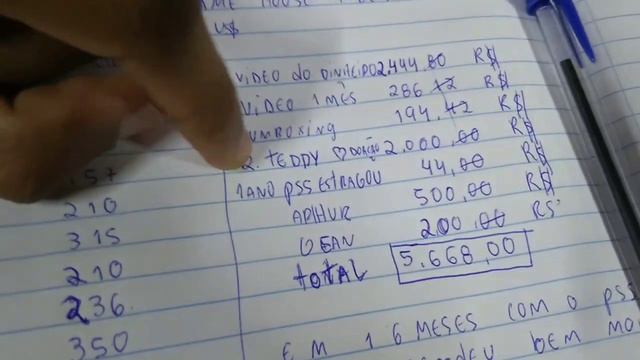 HOUSE
U$
VIDEO DO DINHEIRO 2.444.80 R$
VIDEO 1 MÊS 286.12 R$
UMBOXING 194.42 R$
2. TEDDY ♡ DOAÇÃO 2.000,00 R$
1 ANO PSS ESTRAGOU 44,00 R$
ARTHUR 500,00 R$
GEAN 200,00 R$
TOTAL 5.668,00
157
210
315
210
236
350
EM 16 MESES COM O PSS
BEM MO